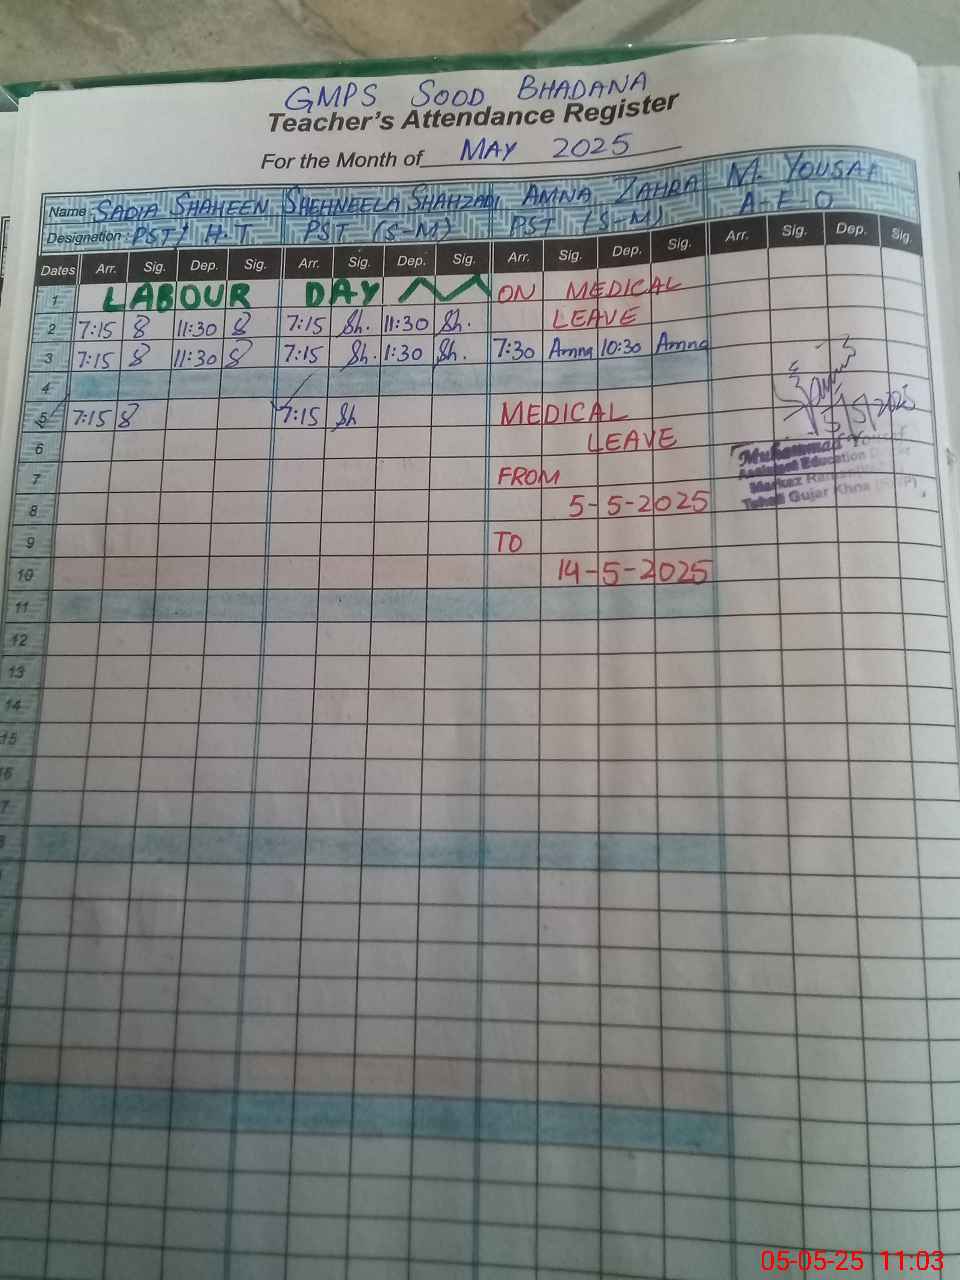 GMPS SOOD BHADANA
Teacher's Attendance Register
For the Month of MAY 2025
Name SADIA SHAHEEN SHEHNEELA SHAHZADI AMNA ZAHRA M. YOUSAF
Designation PST/ H.T PST (S-M) PST (S-M) A-E-O
Dates Arr. Sig. Dep. Sig. Arr. Sig. Dep. Sig. Arr. Sig. Dep. Sig. Arr. Sig. Dep. Sig.
1 LABOUR DAY ON MEDICAL
2 7:15 11:30 7:15 Sh. 11:30 Sh. LEAVE
3 7:15 11:30 7:15 Sh. 1:30 Sh. 7:30 Amna 10:30 Amna
4
5 7:15 7:15 Sh MEDICAL
6 LEAVE
Muhammad Yousaf
Assistant Education
7 FROM
Markaz
8 5-5-2025
Tehsil Gujar Khna
9 TO
10 14-5-2025
11
12
13
14
15
05-05-25 11:03